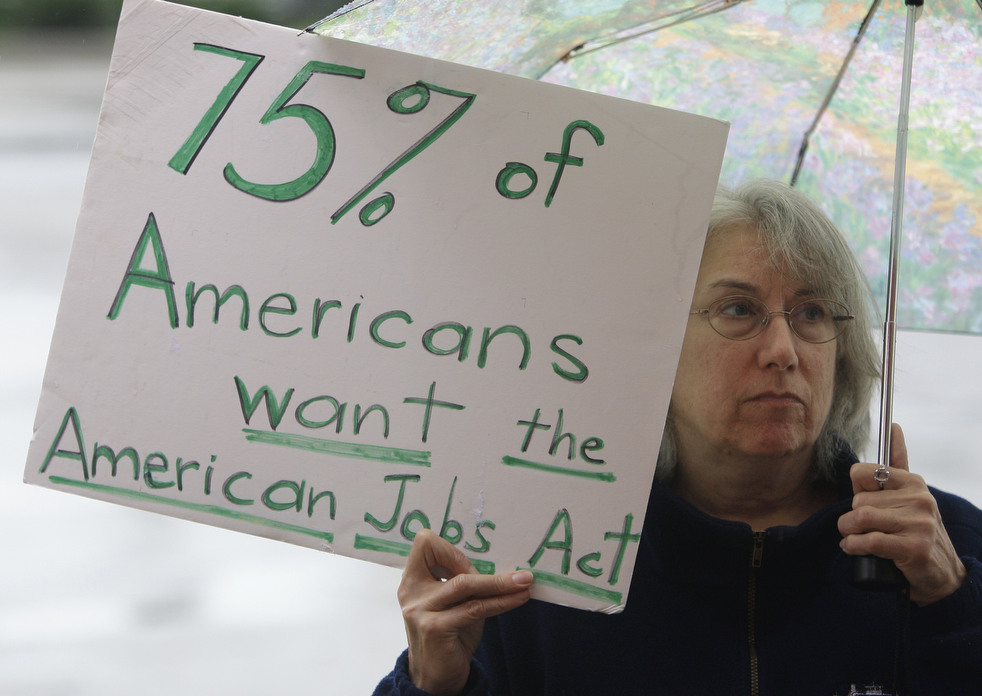 75% of
Americans
want the
American Jobs Act